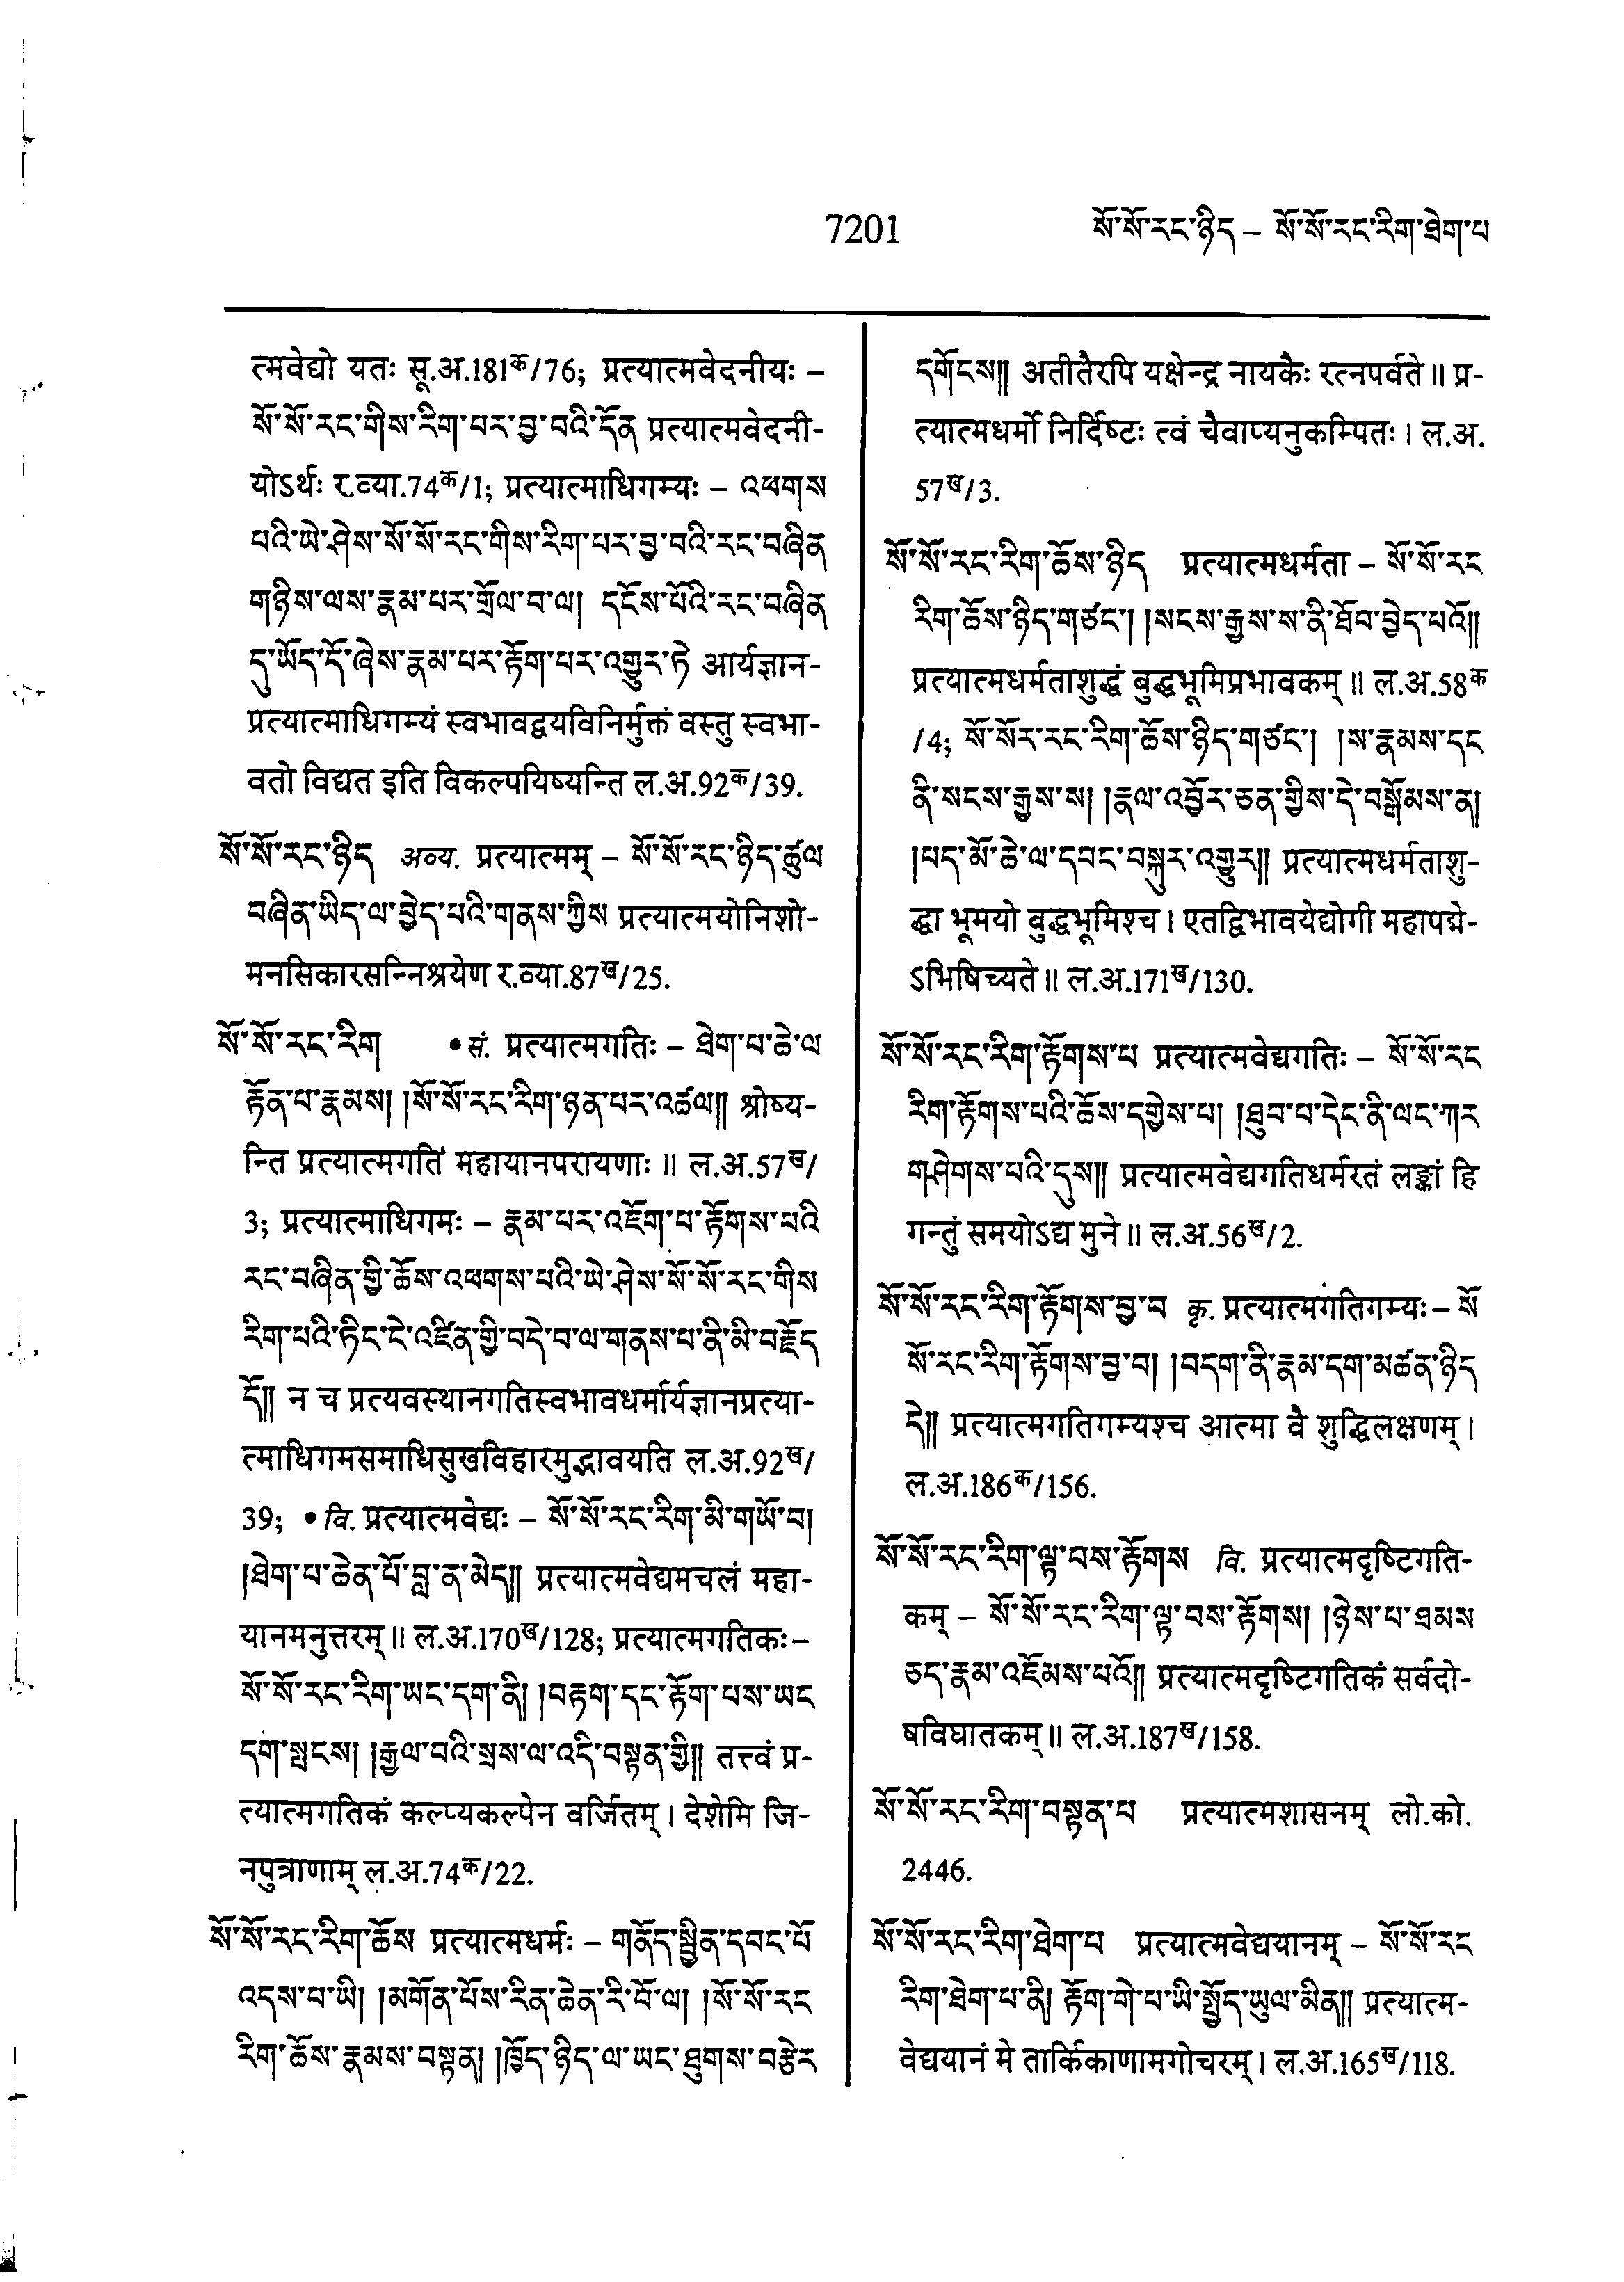 7201
སོ་སོ་རང་ཉིད – སོ་སོ་རང་རིག་ཐེག་པ
त्मवेद्यो यतः सू.अ.181क/76; प्रत्यात्मवेदनीयः –
སོ་སོ་རང་གིས་རིག་པར་བྱ་བའི་དོན प्रत्यात्मवेदनी-
योऽर्थः र.व्या.74क/1; प्रत्यात्माधिगम्यः – འཕགས
པའི་ཡེ་ཤེས་སོ་སོ་རང་གིས་རིག་པར་བྱ་བའི་རང་བཞིན
གཉིས་ལས་རྣམ་པར་གྲོལ་བ་ལ། དངོས་པོའི་རང་བཞིན
དུ་ཡོད་དོ་ཞེས་རྣམ་པར་རྟོག་པར་འགྱུར་ཏེ आर्यज्ञान-
प्रत्यात्माधिगम्यं स्वभावद्वयविनिर्मुक्तं वस्तु स्वभा-
वतो विद्यत इति विकल्पयिष्यन्ति ल.अ.92क/39.
སོ་སོ་རང་ཉིད अव्य. प्रत्यात्मम् – སོ་སོ་རང་ཉིད་ཚུལ
བཞིན་ཡིད་ལ་བྱེད་པའི་གནས་ཀྱིས प्रत्यात्मयोनिशो-
मनसिकारसन्निश्रयेण र.व्या.87ख/25.
སོ་སོ་རང་རིག • सं. प्रत्यात्मगतिः – ཐེག་པ་ཆེ་ལ
རྟོན་པ་རྣམས། །སོ་སོ་རང་རིག་ཉན་པར་འཚལ།། श्रोष्य-
न्ति प्रत्यात्मगतिं महायानपरायणाः ॥ ल.अ.57ख/
3; प्रत्यात्माधिगमः – རྣམ་པར་འཇོག་པ་རྟོགས་པའི
རང་བཞིན་གྱི་ཆོས་འཕགས་པའི་ཡེ་ཤེས་སོ་སོ་རང་གིས
རིག་པའི་ཏིང་ངེ་འཛིན་གྱི་བདེ་བ་ལ་གནས་པ་ནི་མི་བརྗོད
དོ།། न च प्रत्यवस्थानगतिस्वभावधर्मार्यज्ञानप्रत्या-
त्माधिगमसमाधिसुखविहारमुद्भावयति ल.अ.92ख/
39; • वि. प्रत्यात्मवेद्यः – སོ་སོ་རང་རིག་མི་གཡོ་བ།
།ཐེག་པ་ཆེན་པོ་བླ་ན་མེད།། प्रत्यात्मवेद्यमचलं महा-
यानमनुत्तरम् ॥ ल.अ.170ख/128; प्रत्यात्मगतिकः –
སོ་སོ་རང་རིག་ཡང་དག་ནི། །བརྟག་དང་རྟོག་པས་ཡང
དག་སྤངས། །རྒྱལ་བའི་སྲས་ལ་འདི་བསྟན་གྱི།། तत्त्वं प्र-
त्यात्मगतिकं कल्प्यकल्पेन वर्जितम् । देशेमि जि-
नपुत्राणाम् ल.अ.74क/22.
སོ་སོ་རང་རིག་ཆོས प्रत्यात्मधर्मः – གནོད་སྦྱིན་དབང་པོ
འདས་པ་ཡི། །མགོན་པོས་རིན་ཆེན་རི་བོ་ལ། །སོ་སོ་རང
རིག་ཆོས་རྣམས་བསྟན། །ཁྱོད་ཉིད་ལ་ཡང་ཐུགས་བརྩེར
དགོངས།། अतीतैरपि यक्षेन्द्र नायकैः रत्नपर्वते ॥ प्र-
त्यात्मधर्मो निर्दिष्टः त्वं चैवाप्यनुकम्पितः । ल.अ.
57ख/3.
སོ་སོ་རང་རིག་ཆོས་ཉིད प्रत्यात्मधर्मता – སོ་སོ་རང
རིག་ཆོས་ཉིད་གཙང་། །སངས་རྒྱས་ས་ནི་ཐོབ་བྱེད་པའོ།།
प्रत्यात्मधर्मताशुद्धं बुद्धभूमिप्रभावकम् ॥ ल.अ.58क
/4; སོ་སོར་རང་རིག་ཆོས་ཉིད་གཙང་། །ས་རྣམས་དང
ནི་སངས་རྒྱས་ས། །རྣལ་འབྱོར་ཅན་གྱིས་དེ་བསྒོམས་ན།
།པད་མོ་ཆེ་ལ་དབང་བསྐུར་འགྱུར།། प्रत्यात्मधर्मताशु-
द्धा भूमयो बुद्धभूमिश्च । एतद्विभावयेद्योगी महापद्मे-
ऽभिषिच्यते ॥ ल.अ.171ख/130.
སོ་སོ་རང་རིག་རྟོགས་པ प्रत्यात्मवेद्यगतिः – སོ་སོ་རང
རིག་རྟོགས་པའི་ཆོས་དགྱེས་པ། །ཐུབ་པ་དེང་ནི་ལང་ཀར
གཤེགས་པའི་དུས།། प्रत्यात्मवेद्यगतिधर्मरतं लङ्कां हि
गन्तुं समयोऽद्य मुने ॥ ल.अ.56ख/2.
སོ་སོ་རང་རིག་རྟོགས་བྱ་བ कृ. प्रत्यात्मगतिगम्यः – སོ
སོ་རང་རིག་རྟོགས་བྱ་བ། །བདག་ནི་རྣམ་དག་མཚན་ཉིད
དེ།། प्रत्यात्मगतिगम्यश्च आत्मा वै शुद्धिलक्षणम् ।
ल.अ.186क/156.
སོ་སོ་རང་རིག་ལྟ་བས་རྟོགས वि. प्रत्यात्मदृष्टिगति-
कम् – སོ་སོ་རང་རིག་ལྟ་བས་རྟོགས། །ཉེས་པ་ཐམས
ཅད་རྣམ་འཇོམས་པའོ།། प्रत्यात्मदृष्टिगतिकं सर्वदो-
षविघातकम् ॥ ल.अ.187ख/158.
སོ་སོ་རང་རིག་བསྟན་པ प्रत्यात्मशासनम् लो.को.
2446.
སོ་སོ་རང་རིག་ཐེག་པ प्रत्यात्मवेद्ययानम् – སོ་སོ་རང
རིག་ཐེག་པ་ནི། རྟོག་གེ་པ་ཡི་སྤྱོད་ཡུལ་མིན།། प्रत्यात्म-
वेद्ययानं मे तार्किकाणामगोचरम् । ल.अ.165ख/118.